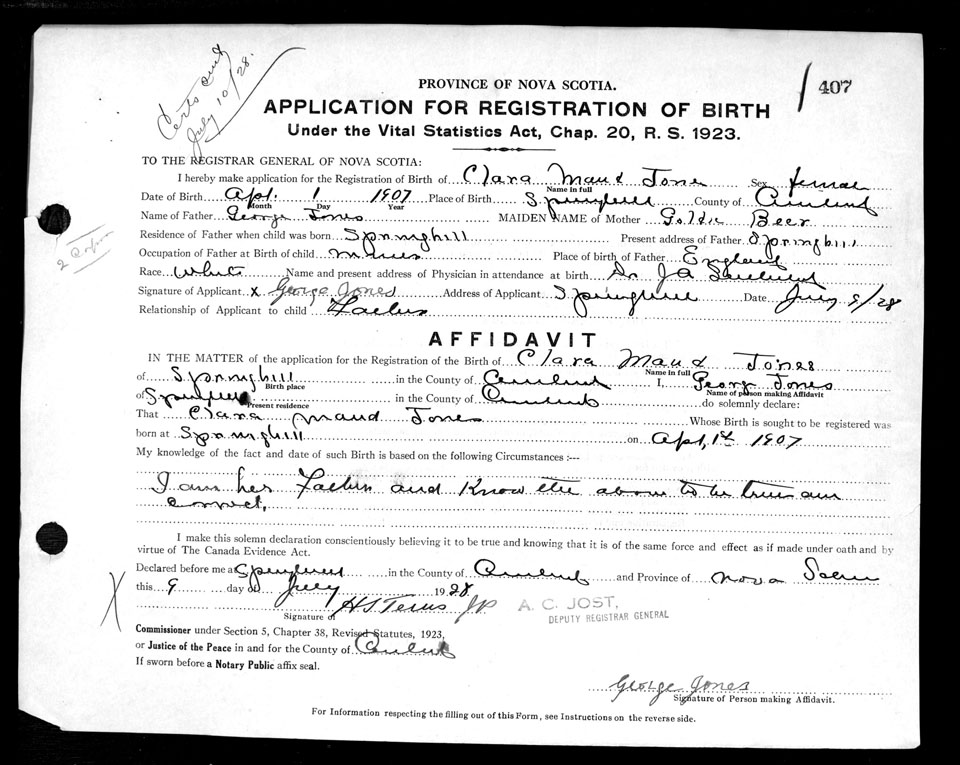 Certs
July 10/28.
407
PROVINCE OF NOVA SCOTIA.
APPLICATION FOR REGISTRATION OF BIRTH
Under the Vital Statistics Act, Chap. 20, R. S. 1923.
TO THE REGISTRAR GENERAL OF NOVA SCOTIA:
I hereby make application for the Registration of Birth of Clara Maud Jone Sex female
Name in full
Date of Birth Apl. 1 1907 Place of Birth Springhill County of
Month Day Year
Name of Father George Jones MAIDEN NAME of Mother Goldie Beer
Residence of Father when child was born Springhill Present address of Father Springhill
Occupation of Father at Birth of child Place of birth of Father England
Race White Name and present address of Physician in attendance at birth Dr. J A
Signature of Applicant x George Jones Address of Applicant Springhill Date July 9/28
Relationship of Applicant to child Father
AFFIDAVIT
IN THE MATTER of the application for the Registration of the Birth of Clara Maud Jones
Name in full
of Springhill in the County of I, George Jones
Birth place Name of person making Affidavit
of Springhill in the County of do solemnly declare:
Present residence
That Clara Maud Jones Whose Birth is sought to be registered was
born at Springhill on Apl, 1st 1907
My knowledge of the fact and date of such Birth is based on the following Circumstances :—
I am her Father and Know the above to be true and
correct,
I make this solemn declaration conscientiously believing it to be true and knowing that it is of the same force and effect as if made under oath and by
virtue of The Canada Evidence Act.
Declared before me at Springhill in the County of and Province of Nova Scotia
this 9 day of July 1928
JP
A. C. JOST,
DEPUTY REGISTRAR GENERAL
Signature of
Commissioner under Section 5, Chapter 38, Revised Statutes, 1923,
or Justice of the Peace in and for the County of
If sworn before a Notary Public affix seal.
George Jones
Signature of Person making Affidavit.
For Information respecting the filling out of this Form, see Instructions on the reverse side.